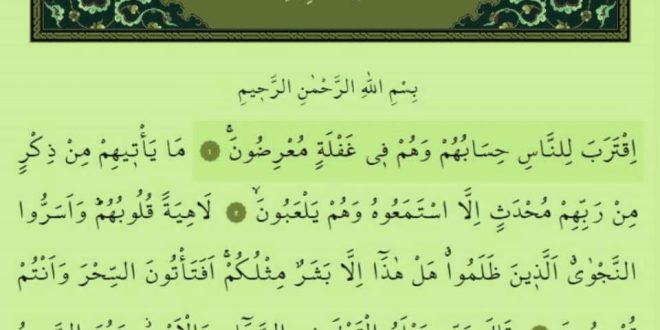 بِسْمِ اللهِ الرَّحْمٰنِ الرَّح۪يمِ
اِقْتَرَبَ لِلنَّاسِ حِسَابُهُمْ وَهُمْ ف۪ي غَفْلَةٍ مُعْرِضُونَۚ ١ مَا يَأْت۪يهِمْ مِنْ ذِكْرٍ
مِنْ رَبِّهِمْ مُحْدَثٍ اِلَّا اسْتَمَعُوهُ وَهُمْ يَلْعَبُونَۙ ٢ لَاهِيَةً قُلُوبُهُمْۜ وَاَسَرُّوا
النَّجْوٰىۗ اَلَّذ۪ينَ ظَلَمُواۗ هَلْ هٰذَٓا اِلَّا بَشَرٌ مِثْلُكُمْۚ اَفَتَأْتُونَ السِّحْرَ وَاَنْتُمْ